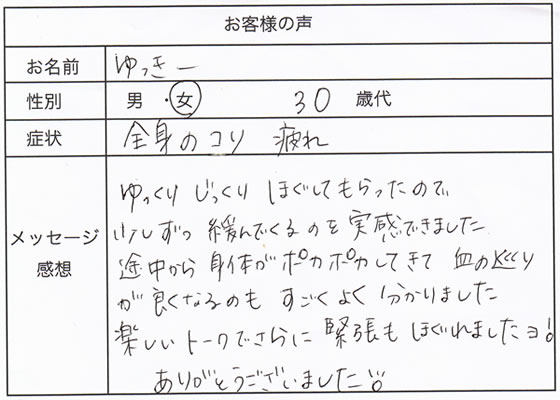 お客様の声
お名前 ゆっきー
性別 男・女 30 歳代
症状 全身のコリ 疲れ
メッセージ
感想
ゆっくり じっくり ほぐしてもらったので
少しずつ 緩んでくるのを 実感できました
途中から 身体がポカポカしてきて 血の巡り
が良くなるのも すごくよく 分かりました
楽しいトークでさらに 緊張も ほぐれましたヨ!
ありがとうございました